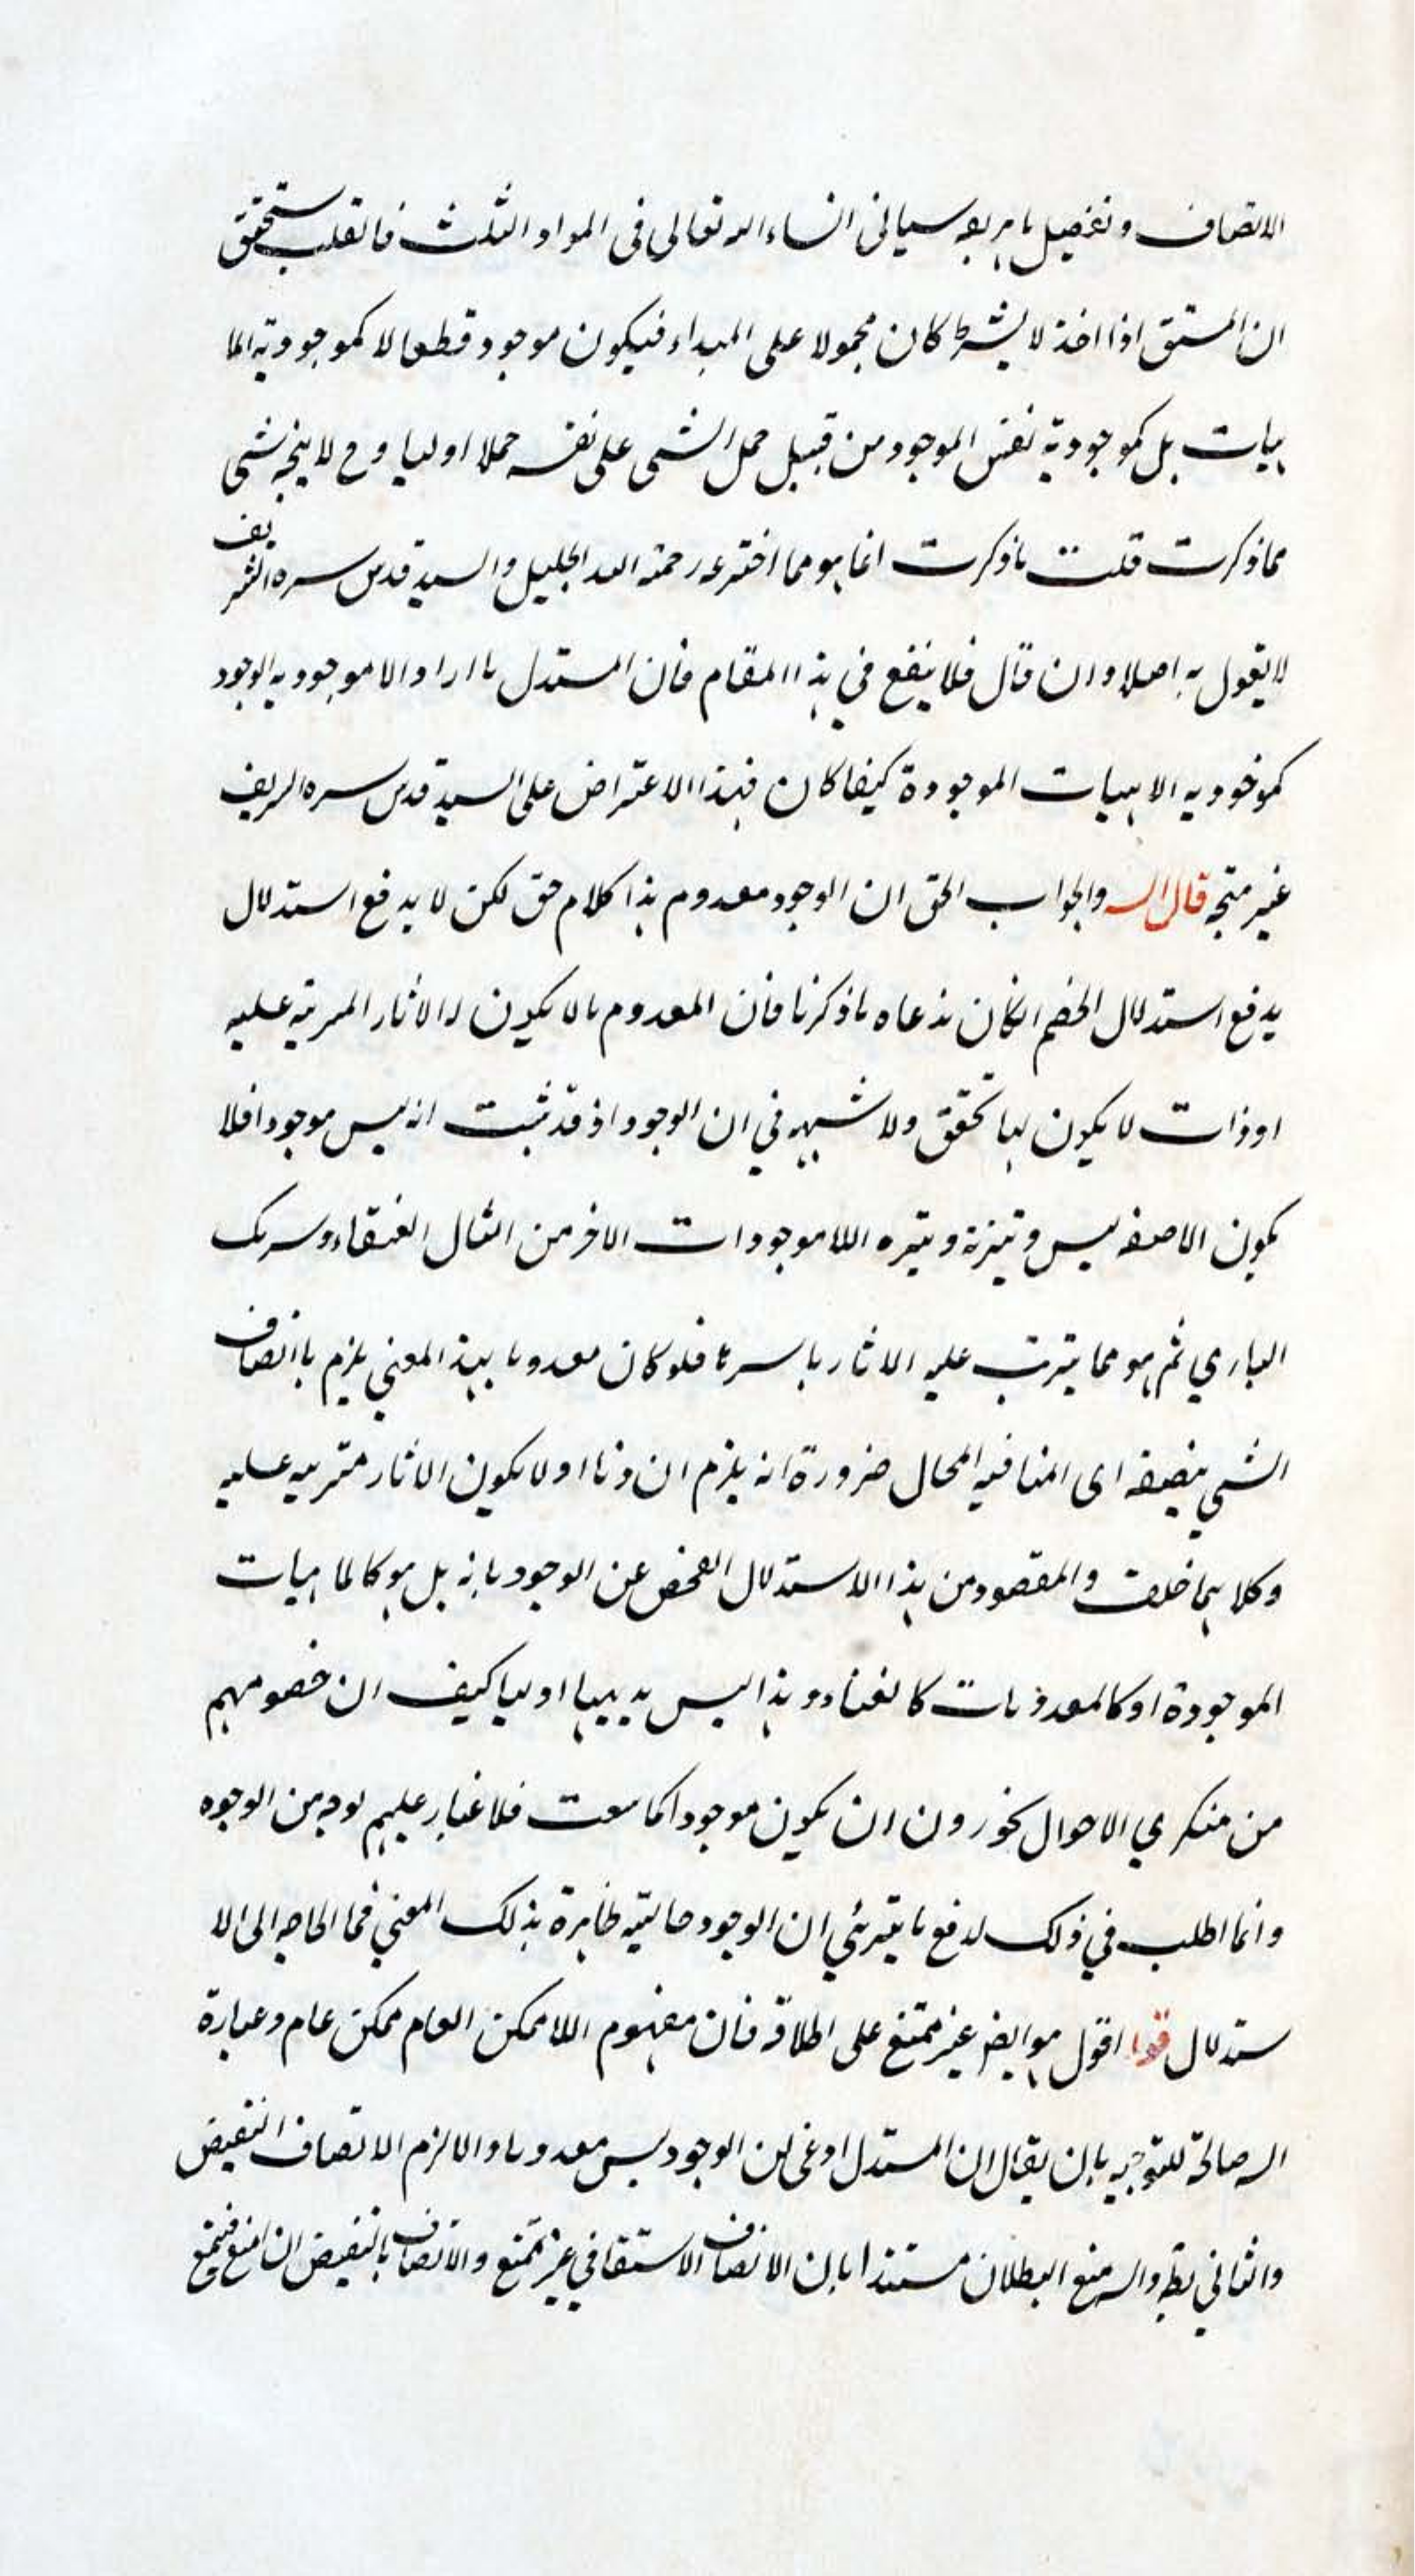 الاتصاف وتفصيل ما يربعه سياتى انساء الله تعالى فى المواد الثلث فان قلت ستحقق
ان المشتق اذا اخذ لا بشرط كان محمولا على المبداء فيكون موجود قطعا لا كموجودية الما
هيات بل كموجودية نفس الموجود من قبيل حمل الشى على نفسه حملا اوليا وح لا يتجه شى
مما ذكرت قلت ما ذكرت انما هو مما اخترعه رحمة الله الجليل والسيد قدس سره الشريف
لا يقول به اصلا وان قال فلا ينفع في هذا المقام فان المستدل ما اراد الا موجوديه الوجود
كموجوديه الماهيات الموجودة كيفما كان فهذا الاعتراض على السيد قدس سره الريف
غير متجه قال الس والجواب الحق ان الوجود معدوم هذا كلام حق لكن لا يدفع استدلال
يدفع استدلال الخصم انكان مذعاه ما ذكرنا فان المعدوم ما لا يكون له الاثار المرتبه عليه
او ذات لا يكون لها تحقق ولا شبهه في ان الوجود اذ قد ثبت انه ليس موجودا فلا
يكون الا صفه ليس وتيزته وتيره اللاموجودات الاخر من المثال العنقاء وسريك
الباري ثم هو مما يترتب عليه الاثار باسرها فلو كان معدوما بهذ المعني يلزم ما اتصاف
الشي بنقيضه اى المنافيه المحال ضرورة انه يلزم ان ذاتا او لا يكون الاثار مترتبه عليه
وكلاهما خلف والمقصود من هذا الاستدلال الفحص عن الوجود بانه بل هو كالماهيات
الموجودة او كالمعدومات كالعنقاء وهذا ليس بديهيا اوليا كيف ان خصومهم
من منكري الاحوال يخورون ان يكون موجودا كما سمعت فلا غبار عليهم لوجه من الوجوه
وانما اطلب في ذلك لدفع ما يترئي ان الوجود حاليته ظاهرة بذلك المعني فما الحاجه الى الا
ستدلال قوله اقول هو ايضا غير ممتنع على اطلاقه فان مفهوم اللاممكن العام ممكن عام وعبارة
الس صالحة للتوجيه بان يقال ان المستدل ادعى ان الوجود ليس معدوما والا لزم الاتصاف النقيض
والثاني بط والس منع البطلان مستندا بان الاتصاف الاستقاقي غير ممتنع والاتصاف بالنقيض ان امتنع فيمتنع